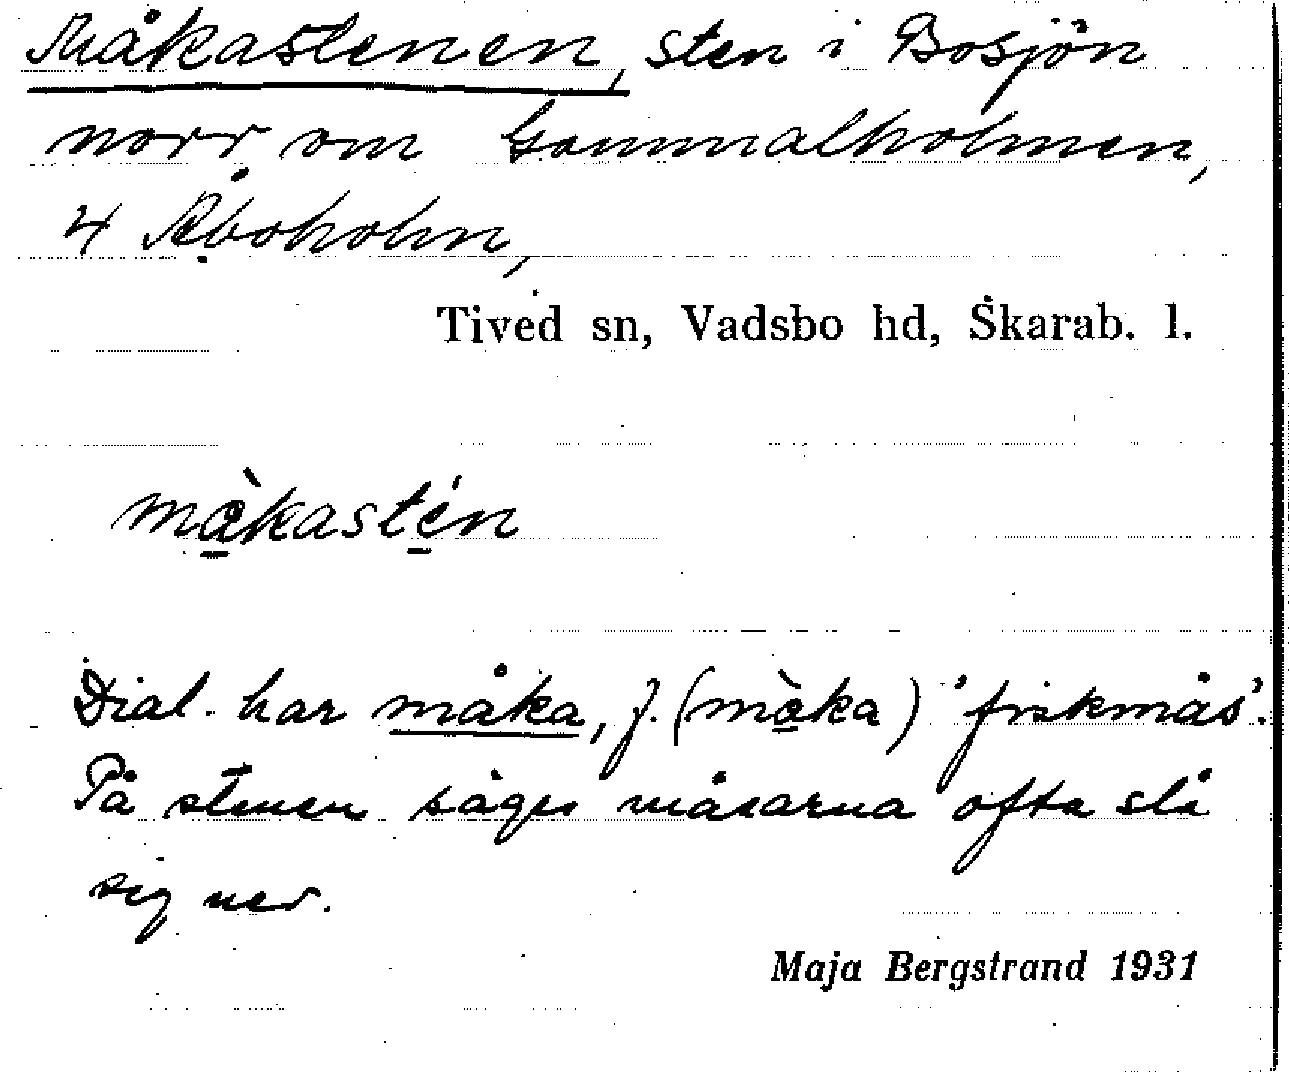 Måkastenen, sten i Bosjön
norr om Gammalholmen,
4 Åboholm,
Tived sn, Vadsbo hd, Skarab. l.
må̀kastén
Dial. har måka, f. (må̀ka) 'fiskmås'.
På stenen säges måsarna ofta slå
sig ner.
Maja Bergstrand 1931